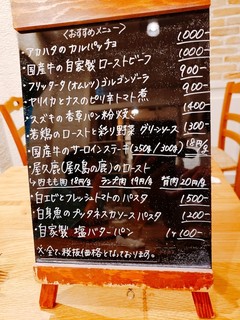 〈おすすめメニュー〉
・アカハタのカルパッチョ 1000-
・国産牛の自家製ローストビーフ 1000-
・フリッタータ(オムレツ)ゴルゴンゾーラ 900-
・ヤリイカとナスのピリ辛トマト煮 900-
・スズキの香草パン粉焼 1400-
・若鶏のローストと彩り野菜 グリーンソース 1300-
・国産牛のサーロインステーキ(250g/300g) 18円/g
・屋久鹿(屋久島の鹿)のロースト
内もも肉 18円/g ランプ肉 19円/g 背肉 20円/g
・白エビとフレッシュトマトのパスタ 1500-
・白身魚のプッタネスカソースパスタ 1200-
・自家製 塩バターパン 1ヶ100-
※全て、税抜価格となっております。